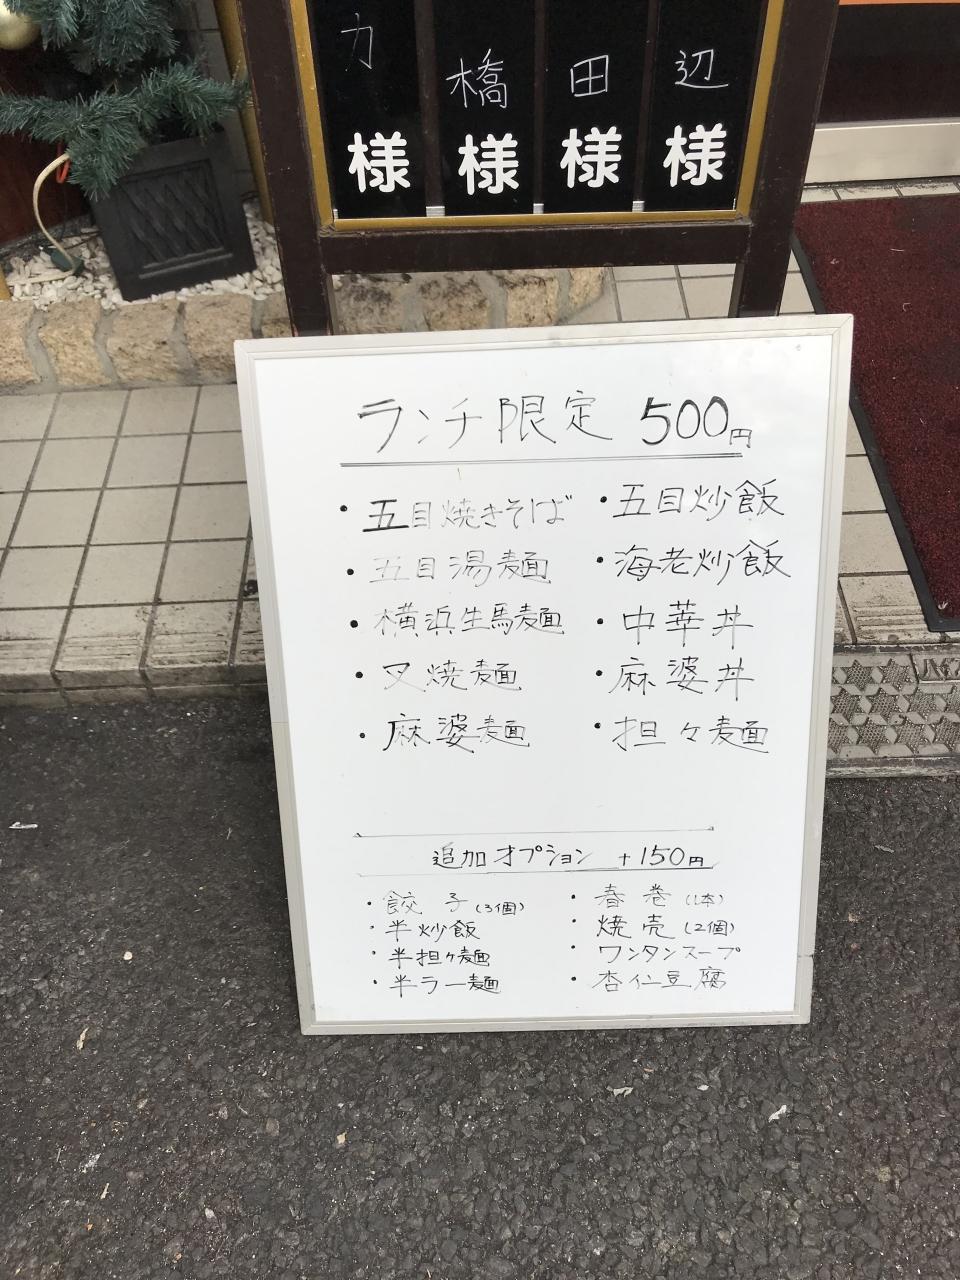 力 様
橋 様
田 様
辺 様
ランチ限定 500円
・五目焼きそば
・五目湯麺
・横浜生馬麺
・叉焼麺
・麻婆麺
・五目炒飯
・海老炒飯
・中華丼
・麻婆丼
・担々麺
追加オプション +150円
・餃子(3個)
・半炒飯
・半担々麺
・半ラー麺
・春巻(1本)
・焼売(2個)
・ワンタンスープ
・杏仁豆腐